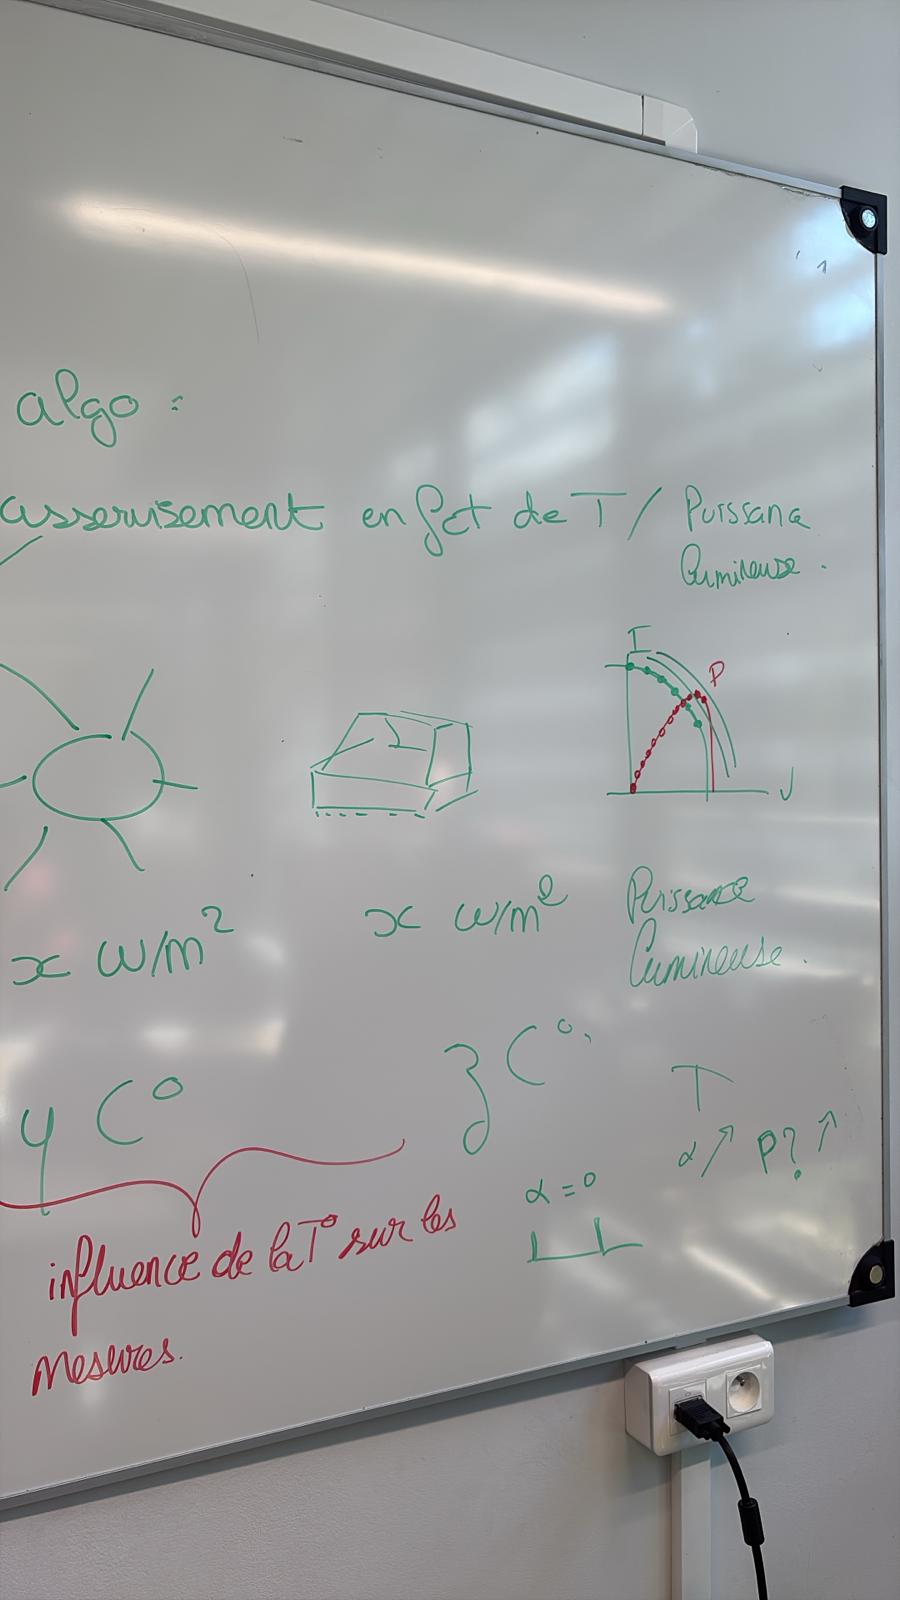 algo :
asservisement en fct de T / Puissance
lumineuse.
I
P
x W/m² x W/m² Puissance
lumineuse.
y C° z C°.
T
α ↗ P? ↗
α = 0
influence de la T° sur les
Mesures.